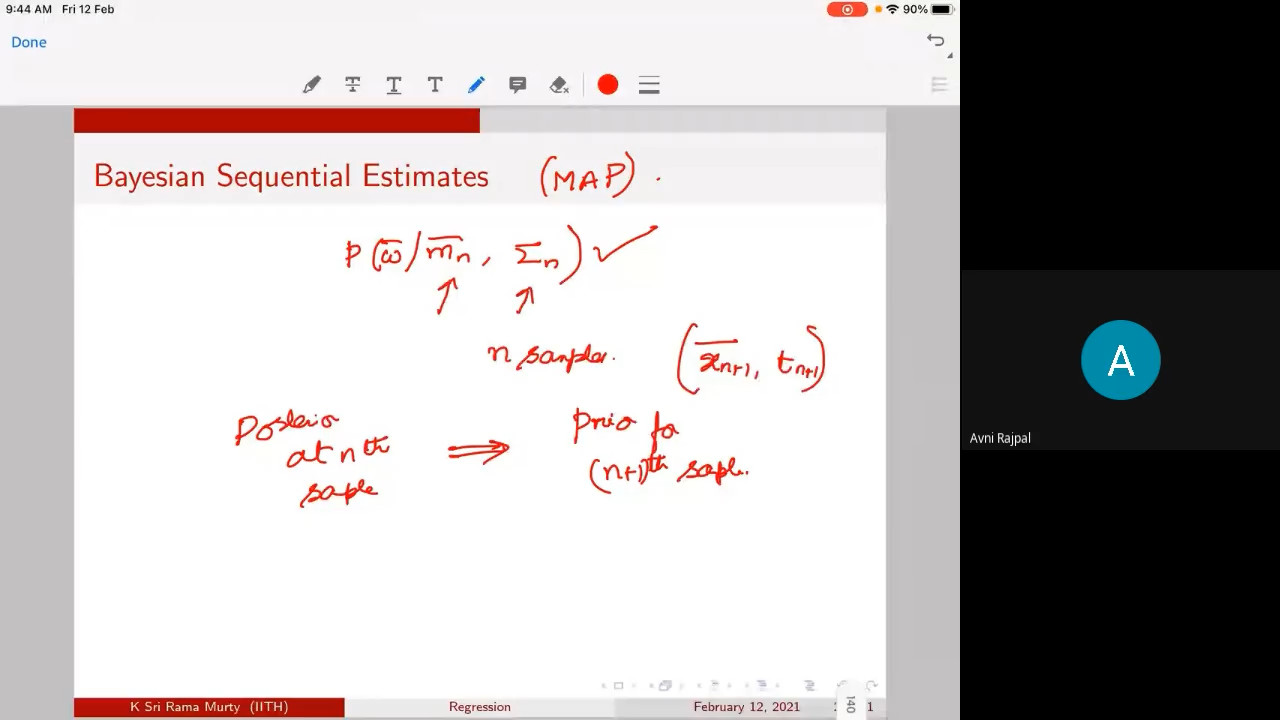 9:44 AM Fri 12 Feb
90%
Done
Bayesian Sequential Estimates (MAP).
P(ω̅/m̅n, Σn) ✓
n samples. (x̅n+1, tn+1)
Posterior
at nth
saple
⇒
Prior for
(n+1)th saple.
A
Avni Rajpal
140
K Sri Rama Murty (IITH) Regression February 12, 2021